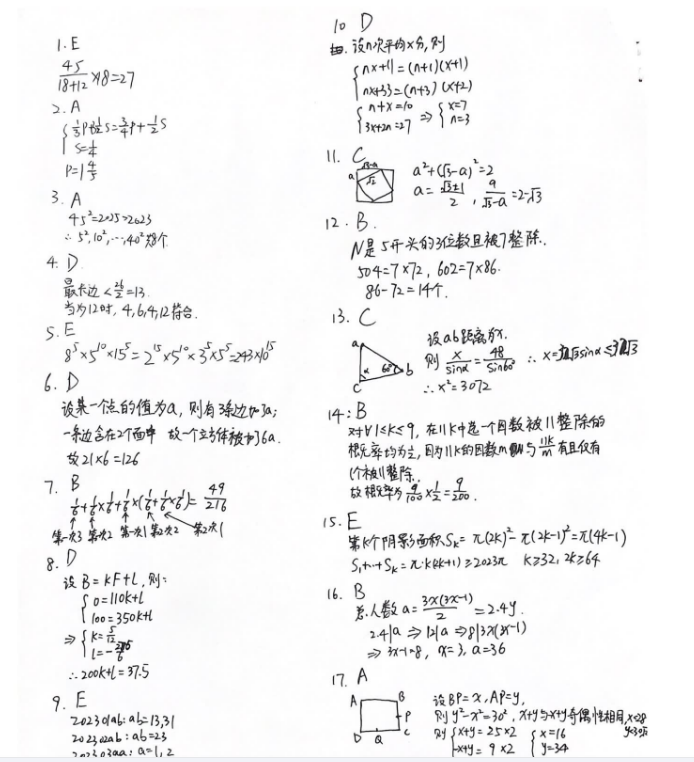 1. E
45/(18+12) ×18=27
2. A
{ 1/3P+1/2S=3/4P+1/2S
S=1/4
3. A
45²=2025>2023
∴ 5², 10², ⋯, 40² 共8个
4. D
最长边 < 26/2 = 13
当为12时, 4, 6, 4, 12 符合.
5. E
8⁵×5¹⁰×15⁵=2¹⁵×5¹⁰×3⁵×5⁵=243×10¹⁵
6. D
设某一个点的值为a, 则有3条边加了a;
一条边含在2个面中 故一个立方体被加了6a.
故21×6=126
7. B
1/6+1/6×1/6+1/6×(1/6+1/6×1/6)= 49/216
第一次3 第一次2 第一次1第二次2 第二次1
8. D
设 B=kF+L, 则:
{ 0=110k+L
100=350k+L
⇒ { k=5/12
∴ 200k+L=37.5
9. E
202301ab: ab=13,31
202302ab: ab=23
202303aa: a=1, 2
10 D
设n次平均x分, 则
{ nx+11=(n+1)(x+1)
nx+33=(n+3)(x+2)
{ n+x=10
3x+2n=27 ⇒ { x=7
n=3
11. C
a √3-a √2
a²+(√3-a)²=2
a= (√3±1)/2 , a/(√3-a)=2-√3
12. B.
N是5开头的3位数且被7整除.
504=7×72, 602=7×86.
86-72=14个.
13. C
a b c α 60°
设ab距离为x.
则 x/sinα = 48/sin60°
∴ x²=3072
14: B
对∀1≤k≤9, 在11k中选一个因数被11整除的
概率均为1/2, 因为11k的因数m与11k/m有且仅有
1个被11整除.
故概率为 9/100×1/2=9/200.
15. E
第k个阴影面积Sk= π(2k)²-π(2k-1)²=π(4k-1)
S₁+⋯+Sk=π·k(2k+1)≥2023π k≥32, 2k≥64
16. B
总人数 a= 3x(3x-1)/2 = 2.4y.
2.4|a ⇒ 12|a ⇒ 8|3x(3x-1)
⇒ 3x-1=8, x=3, a=36
17. A
A B P C Q D
设BP=x, AP=y,
则y²-x²=30², x+y与x+y奇偶性相同, x<28
则 { x+y=25×2
-x+y=9×2
{ x=16
y=34